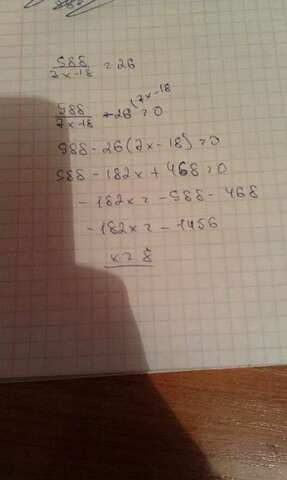 988/7x-18 = 26
988/7x-18 - 26 (7x-18 = 0
988 - 26(7x - 18) = 0
988 - 182x + 468 = 0
- 182x = - 988 - 468
- 182x = - 1456
x = 8